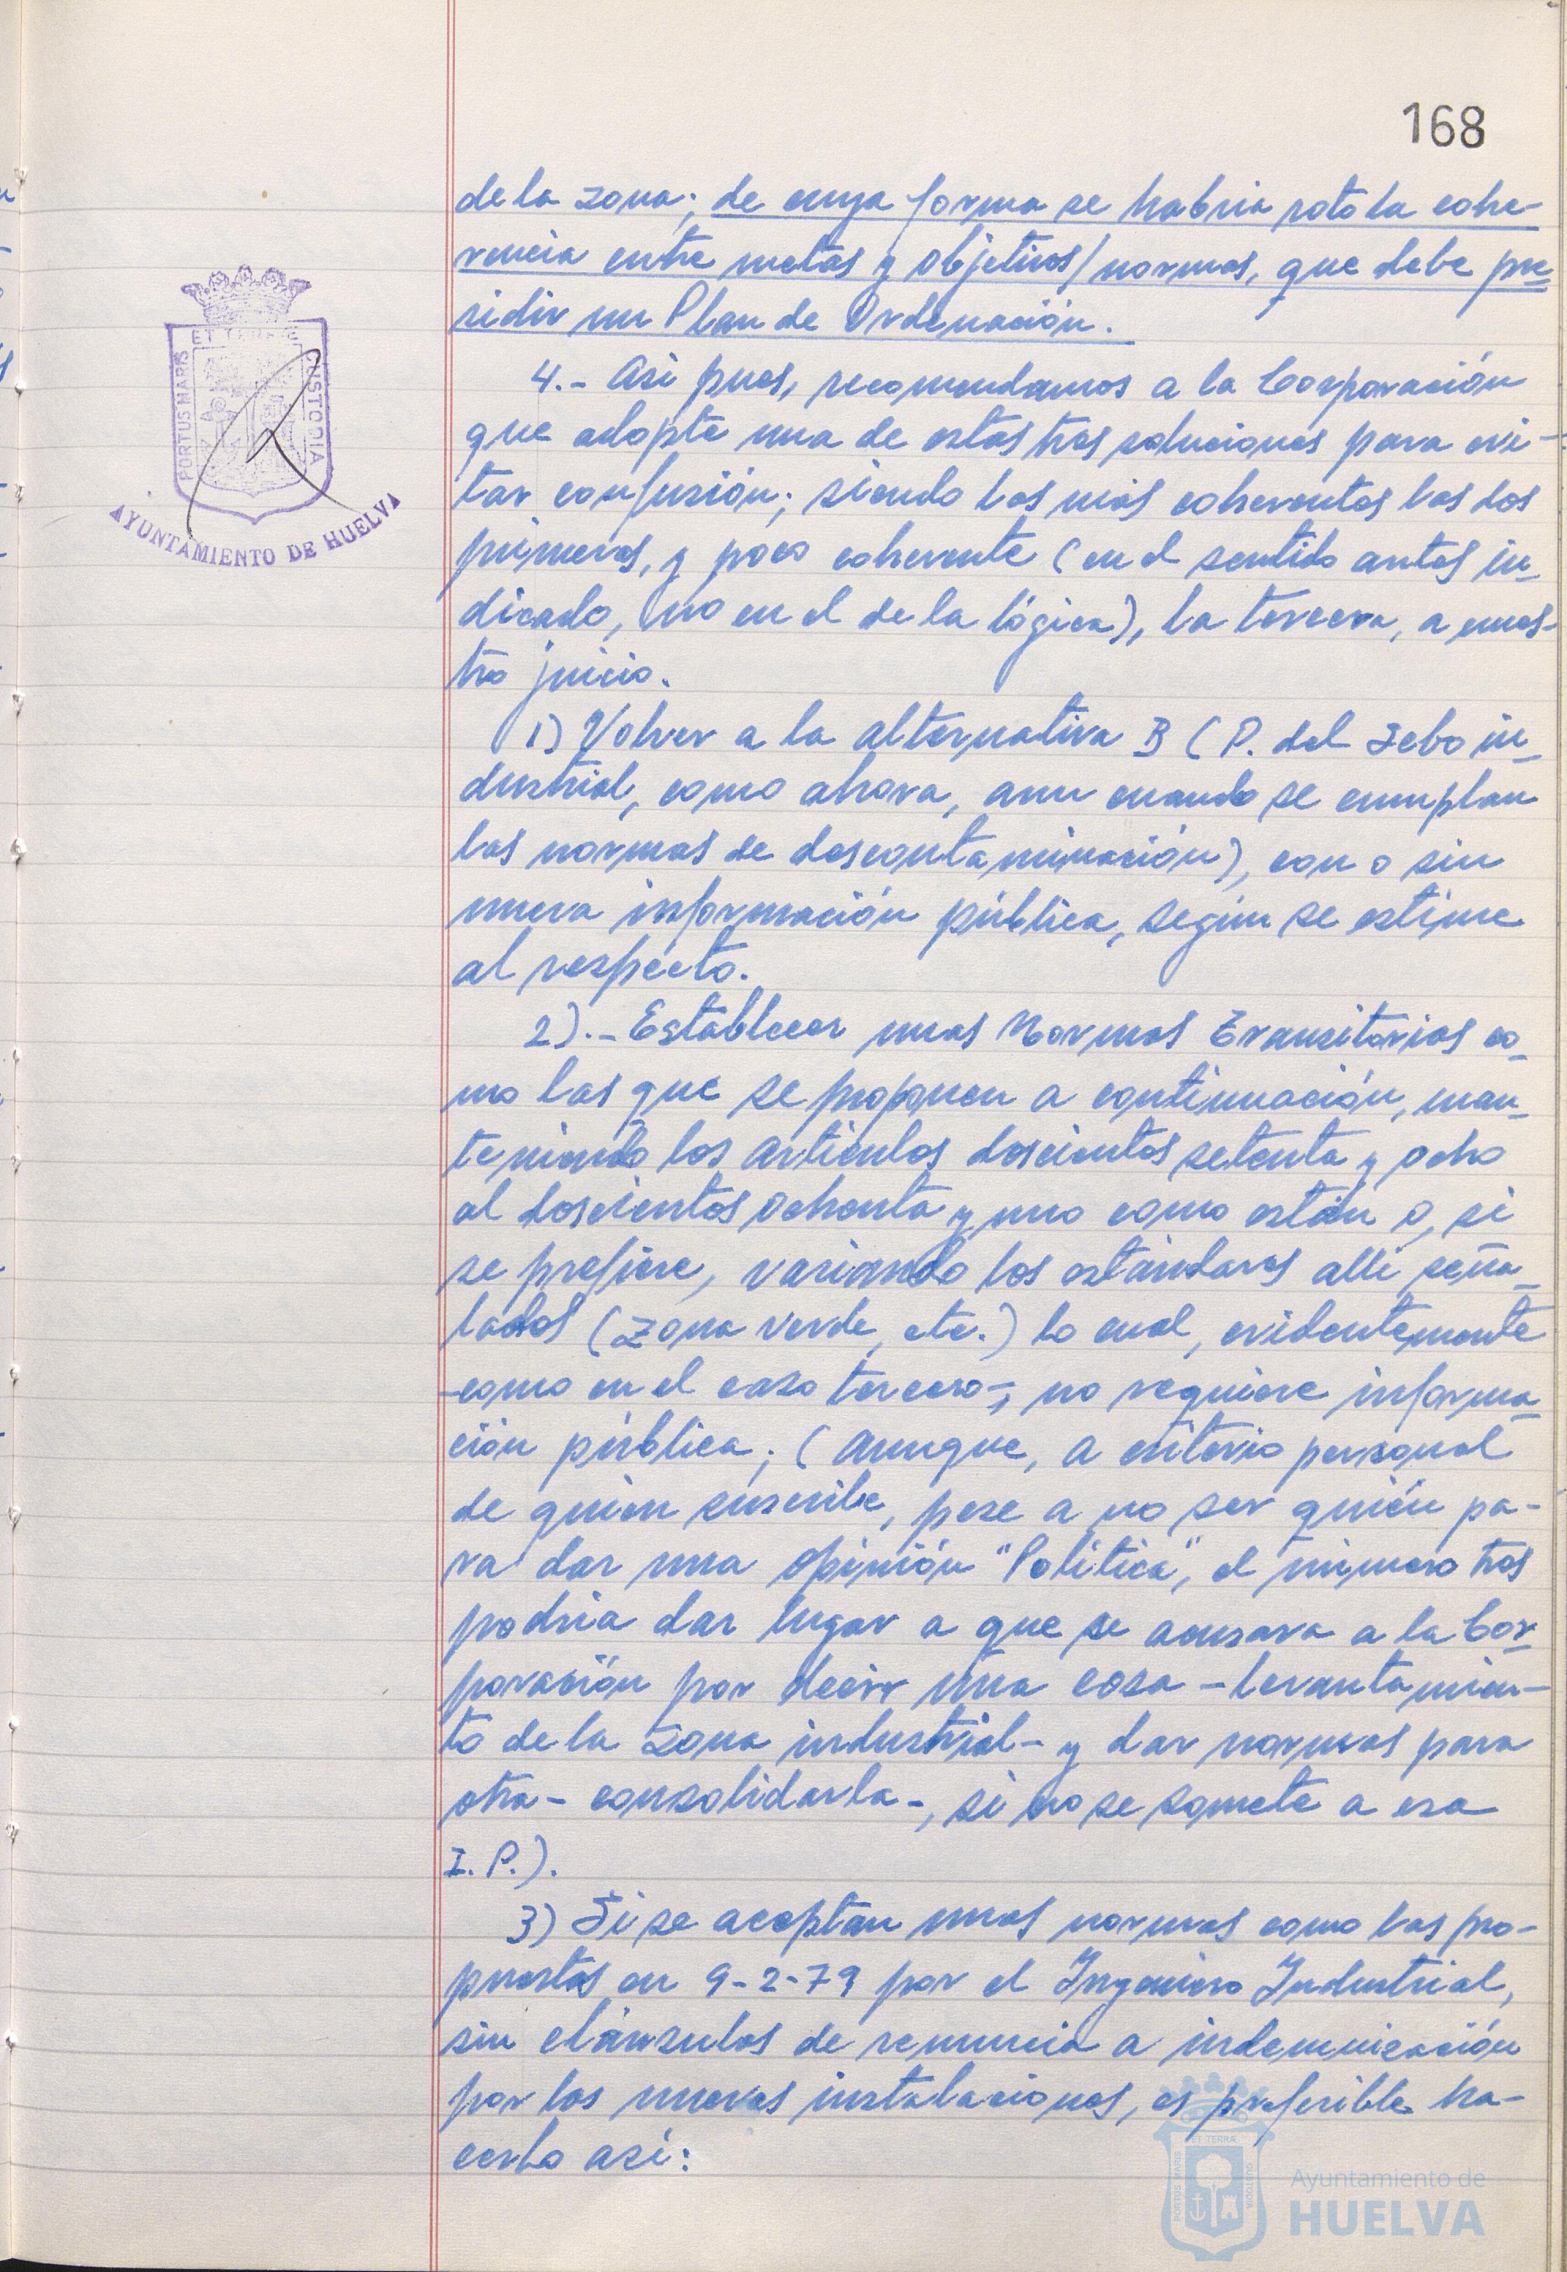 168
de la zona; de cuya forma se habria roto la cohe-
rencia entre metas y objetivos/normas, que debe pre
sidir un Plan de Ordenación.
4.- Asi pues, recomendamos a la Corporación
que adopte una de estas tres soluciones para evi-
tar confusión; siendo las más coherentes las dos
primeras, y poco coherente (en el sentido antes in-
dicado, no en el de la lógica), la tercera, a nues-
tro juicio.
1) Volver a la alternativa B (P. del Sebo in-
dustrial, como ahora, aun cuando se cumplan
las normas de descontaminación), con o sin
nueva información pública, según se estime
al respecto.
2).- Establecer unas Normas Transitorias co-
mo las que se proponen a continuación, man-
teniendo los artículos doscientos setenta y ocho
al doscientos ochenta y uno como están o, si
se prefiere, variando los estándares alli seña-
lados (zona verde, etc.) lo cual, evidentemente
-como en el caso tercero-, no requiere informa-
ción pública; (aunque, a criterio personal
de quien suscribe, pese a no ser quién pa-
ra dar una opinión "Politica", el número tres
podria dar lugar a que se acusara a la Cor-
poración por decir una cosa -levantamien-
to de la zona industrial- y dar normas para
otra- consolidarla-, si no se somete a esa
I. P.).
3) Si se aceptan unas normas como las pro-
puestas en 9-2-79 por el Ingeniero Industrial,
sin cláusulas de renuncia a indemnización
por las nuevas instalaciones, es preferible ha-
cerlo asi:
PORTUS MARIS ET TERRAE CUSTODIA
AYUNTAMIENTO DE HUELVA
PORTUS MARIS ET TERRÆ CUSTODIA
Ayuntamiento de
HUELVA